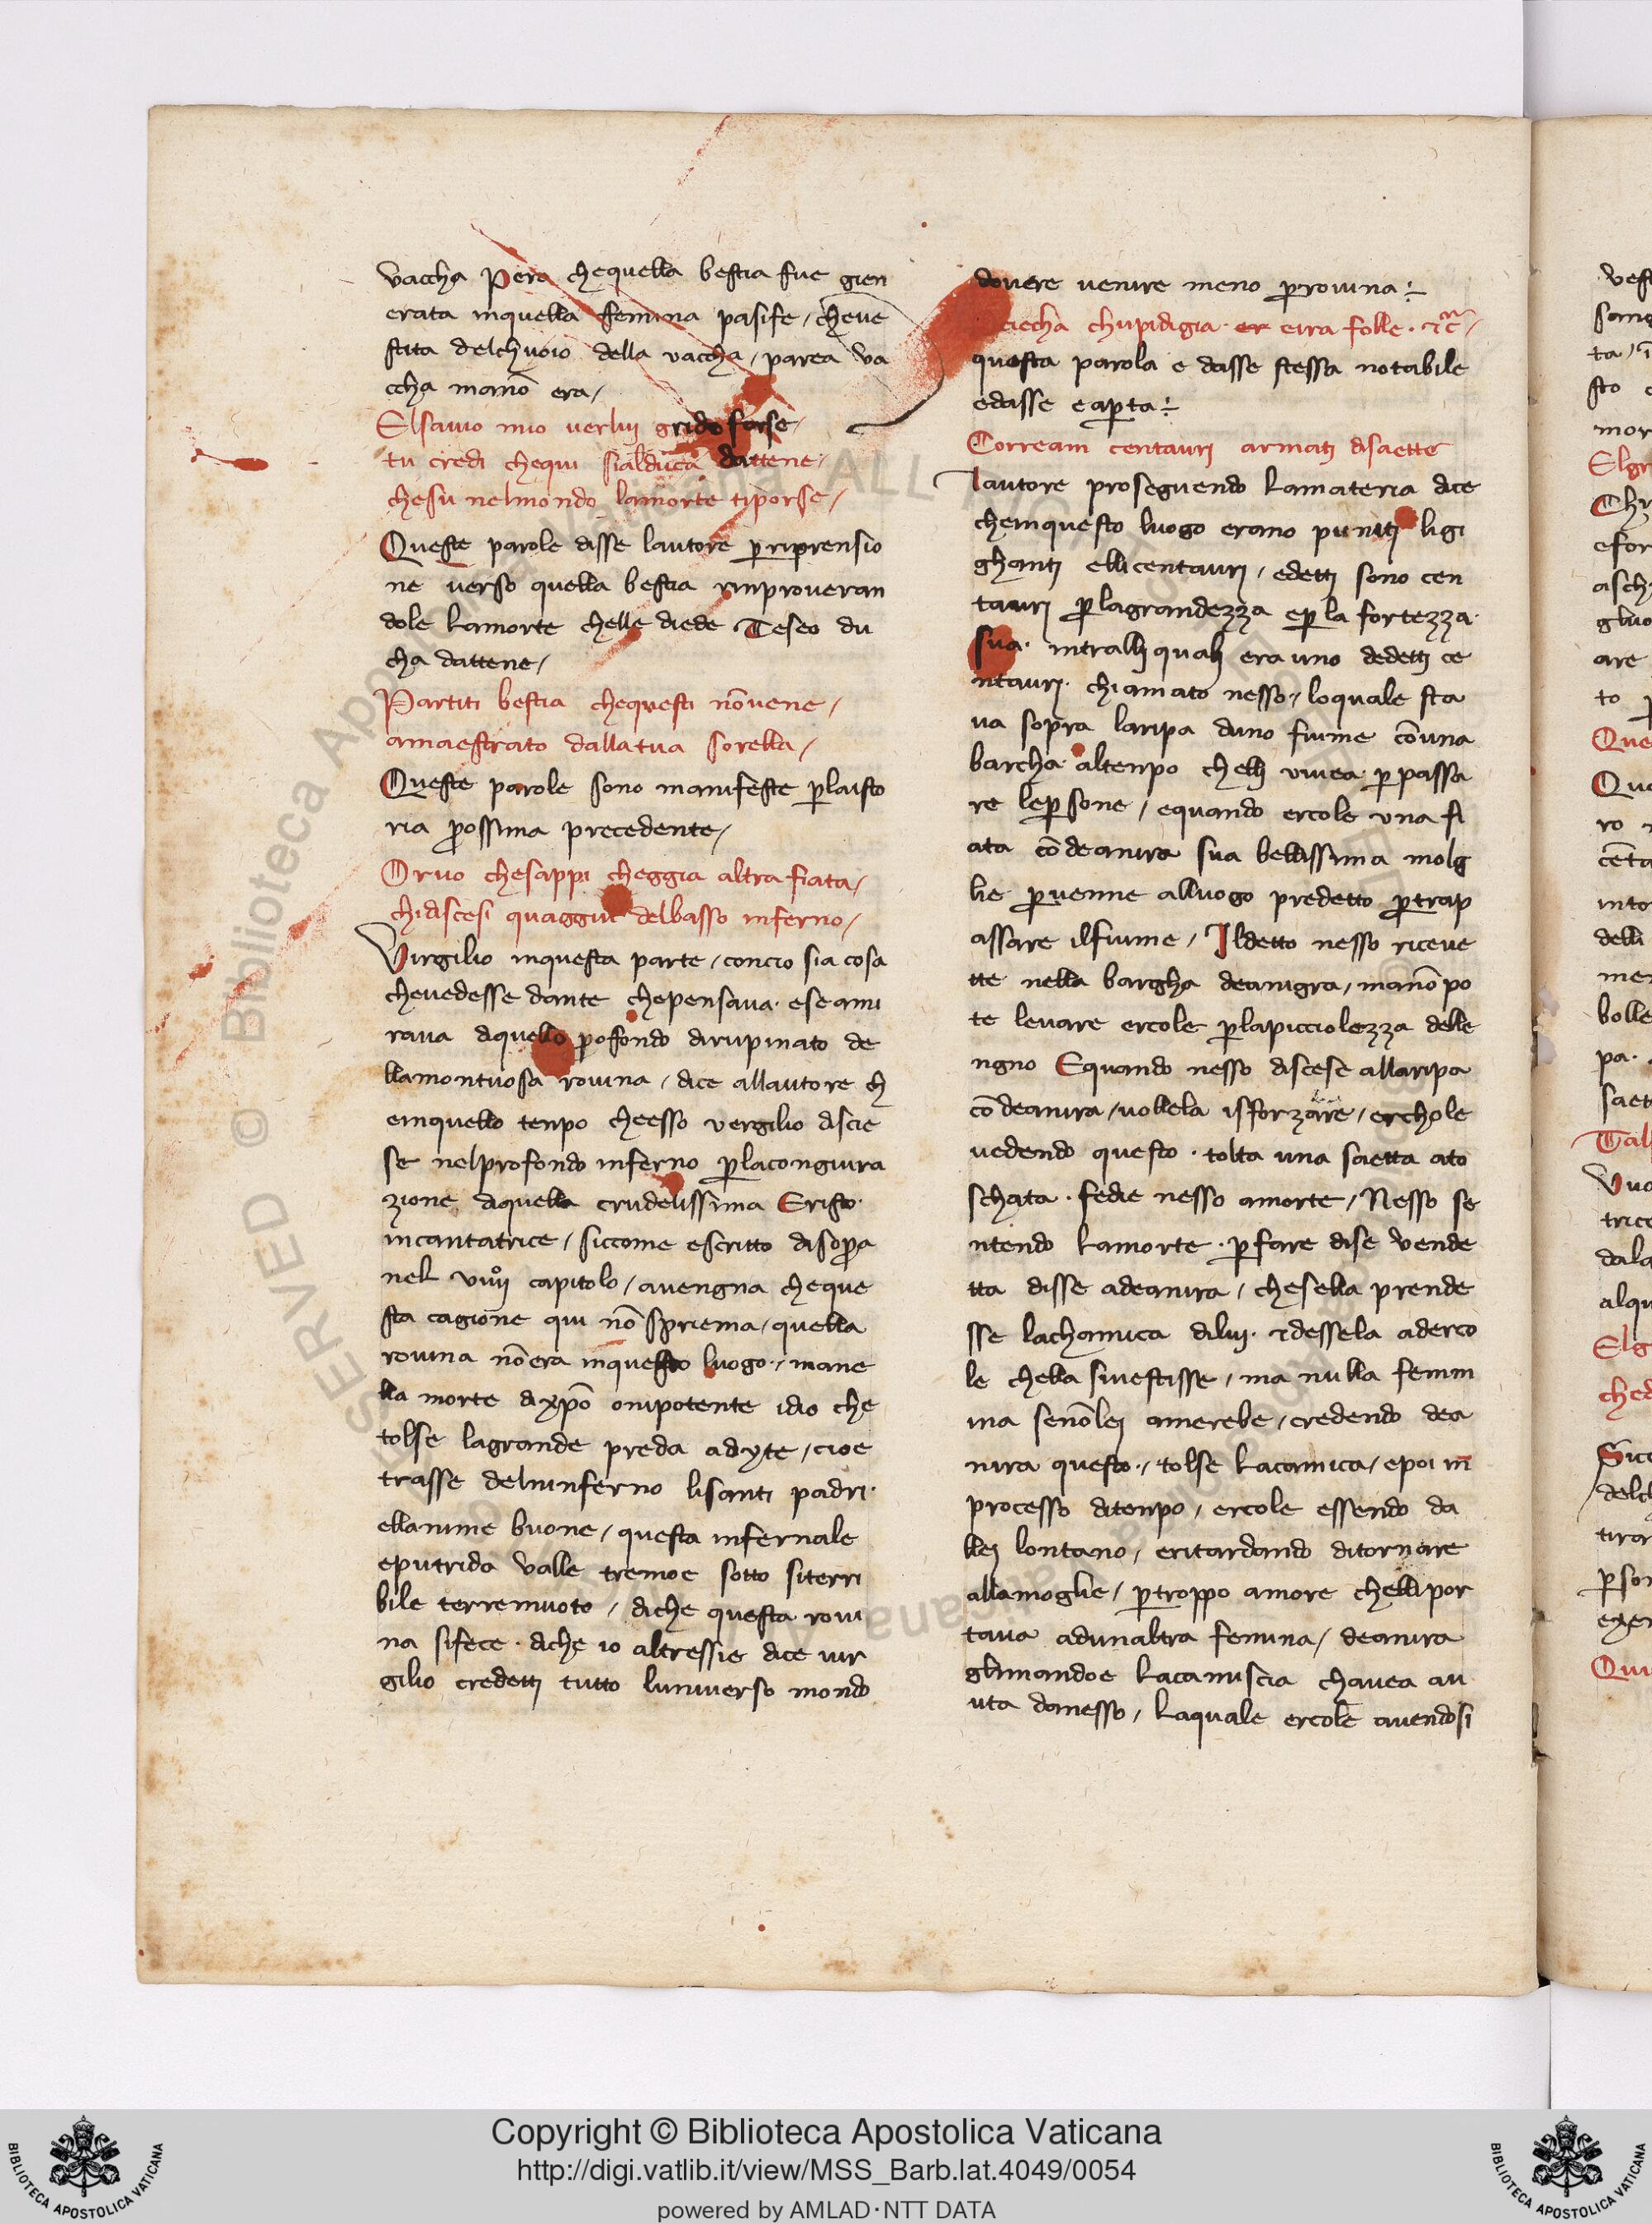 vaccha Pero chequella bestia fue gien
erata inquella femina pasife / cheve
stita delchuoio della vaccha / parea va
ccha manō era /
Elsauio mio uerluj grido forse /
tu credi chequi sialduca dattene /
chesu nelmondo lamorte tiporse /
Queste parole disse lautore ꝑriprensio
ne verso quella bestia rinproueran
dole Lamorte chelle diede Teseo du
cha dattene /
Partiti bestia chequesti nōvene /
amaestrato dallatua sorella /
Queste parole sono manifeste ꝑlaisto
ria ꝓossima precedente /
Orvo chesappi cheggia altra fiata /
chidiscesi quaggiu delbasso inferno /
Virgilio inquesta parte / concio sia cosa
chevedesse dante chepensava · eseami
raua diquello ꝓofondo dirupinato de
llamontuosa rouina / dice allautore ch
einquello tenpo cheesso vergilio discie
se nelprofondo inferno ꝑlacongiura
zione diquella crudelissima Eristo ·
incantatrice / siccome escritto disopͣ
nel viiijº capitolo / auengna cheque
sta cagione qui nō spriema / quella
rouina nōera inquesto luogo · / mane
lla morte dixpō onipotente idio che
tolse lagrande preda adyte / cioe
trasse delninferno lisanti padri ·
ellanime buone / questa infernale
eputrida valle tremoe sotto siterri
bile terremuoto / diche questa roui
na sifece · diche io altressie dice uir
gilio credettj tutto luniuerso mondo
douere uenire meno ꝑrouina ÷
ciecha chupidigia · er eira folle · ⁊cͣ /
questa parola e dasse stessa notabile
edasse eaꝑta ÷
Corream centaurj armatj disaette
lautore proseguendo Lamateria dice
cheinquesto luogo erano punitj ligi
ghantj ellicentaurj / edettj sono cen
taurj ꝑlagrandezza eꝑ la fortezza ·
sua · intrallj qualj era uno dedettj ce
ntaurj · chiamato nesso · / loquale sta
ua sopra laripa duno fiume cōuna
barcha · altenpo chellj viuea · ꝑ passa
re leꝑsone / equando ercole una fi
ata cō deanira sua bellissima molg
lie ꝑvenne alluogo predetto ꝑtrap
assare ilfiume / Ildetto nesso riceue
tte nella bargha deanigra / manō po
te leuare ercole ꝑlapicciolezza delle
ngno Equando nesso discese allaripa
cō deanira / uollela isforzare / erchole
uedendo questo · tolta una saetta ato
schata · fedie nesso amorte / Nesso se
ntendo Lamorte · ꝑ fare dise vende
tta disse adeanira / chesella prende
sse lachamica diluj · ⁊dessela aderco
le chella siuestisse / ma nulla femm
ina senōlej amerebe / credendo dea
nira questo · / tolse Lacamica / epoi in
processo ditenpo / ercole essendo da
llej lontano / eritardando ditornare
allamoglie / ꝑtroppo amore chelliꝑor
taua adunaltra femina / deanira
glimandoe Lacamiscia chauea au
uta danesso / Laquale ercole auendosi
Copyright © Biblioteca Apostolica Vaticana
http://digi.vatlib.it/view/MSS_Barb.lat.4049/0054
powered by AMLAD·NTT DATA
BIBLIOTECA APOSTOLICA VATICANA
BIBLIOTECA APOSTOLICA VATICANA